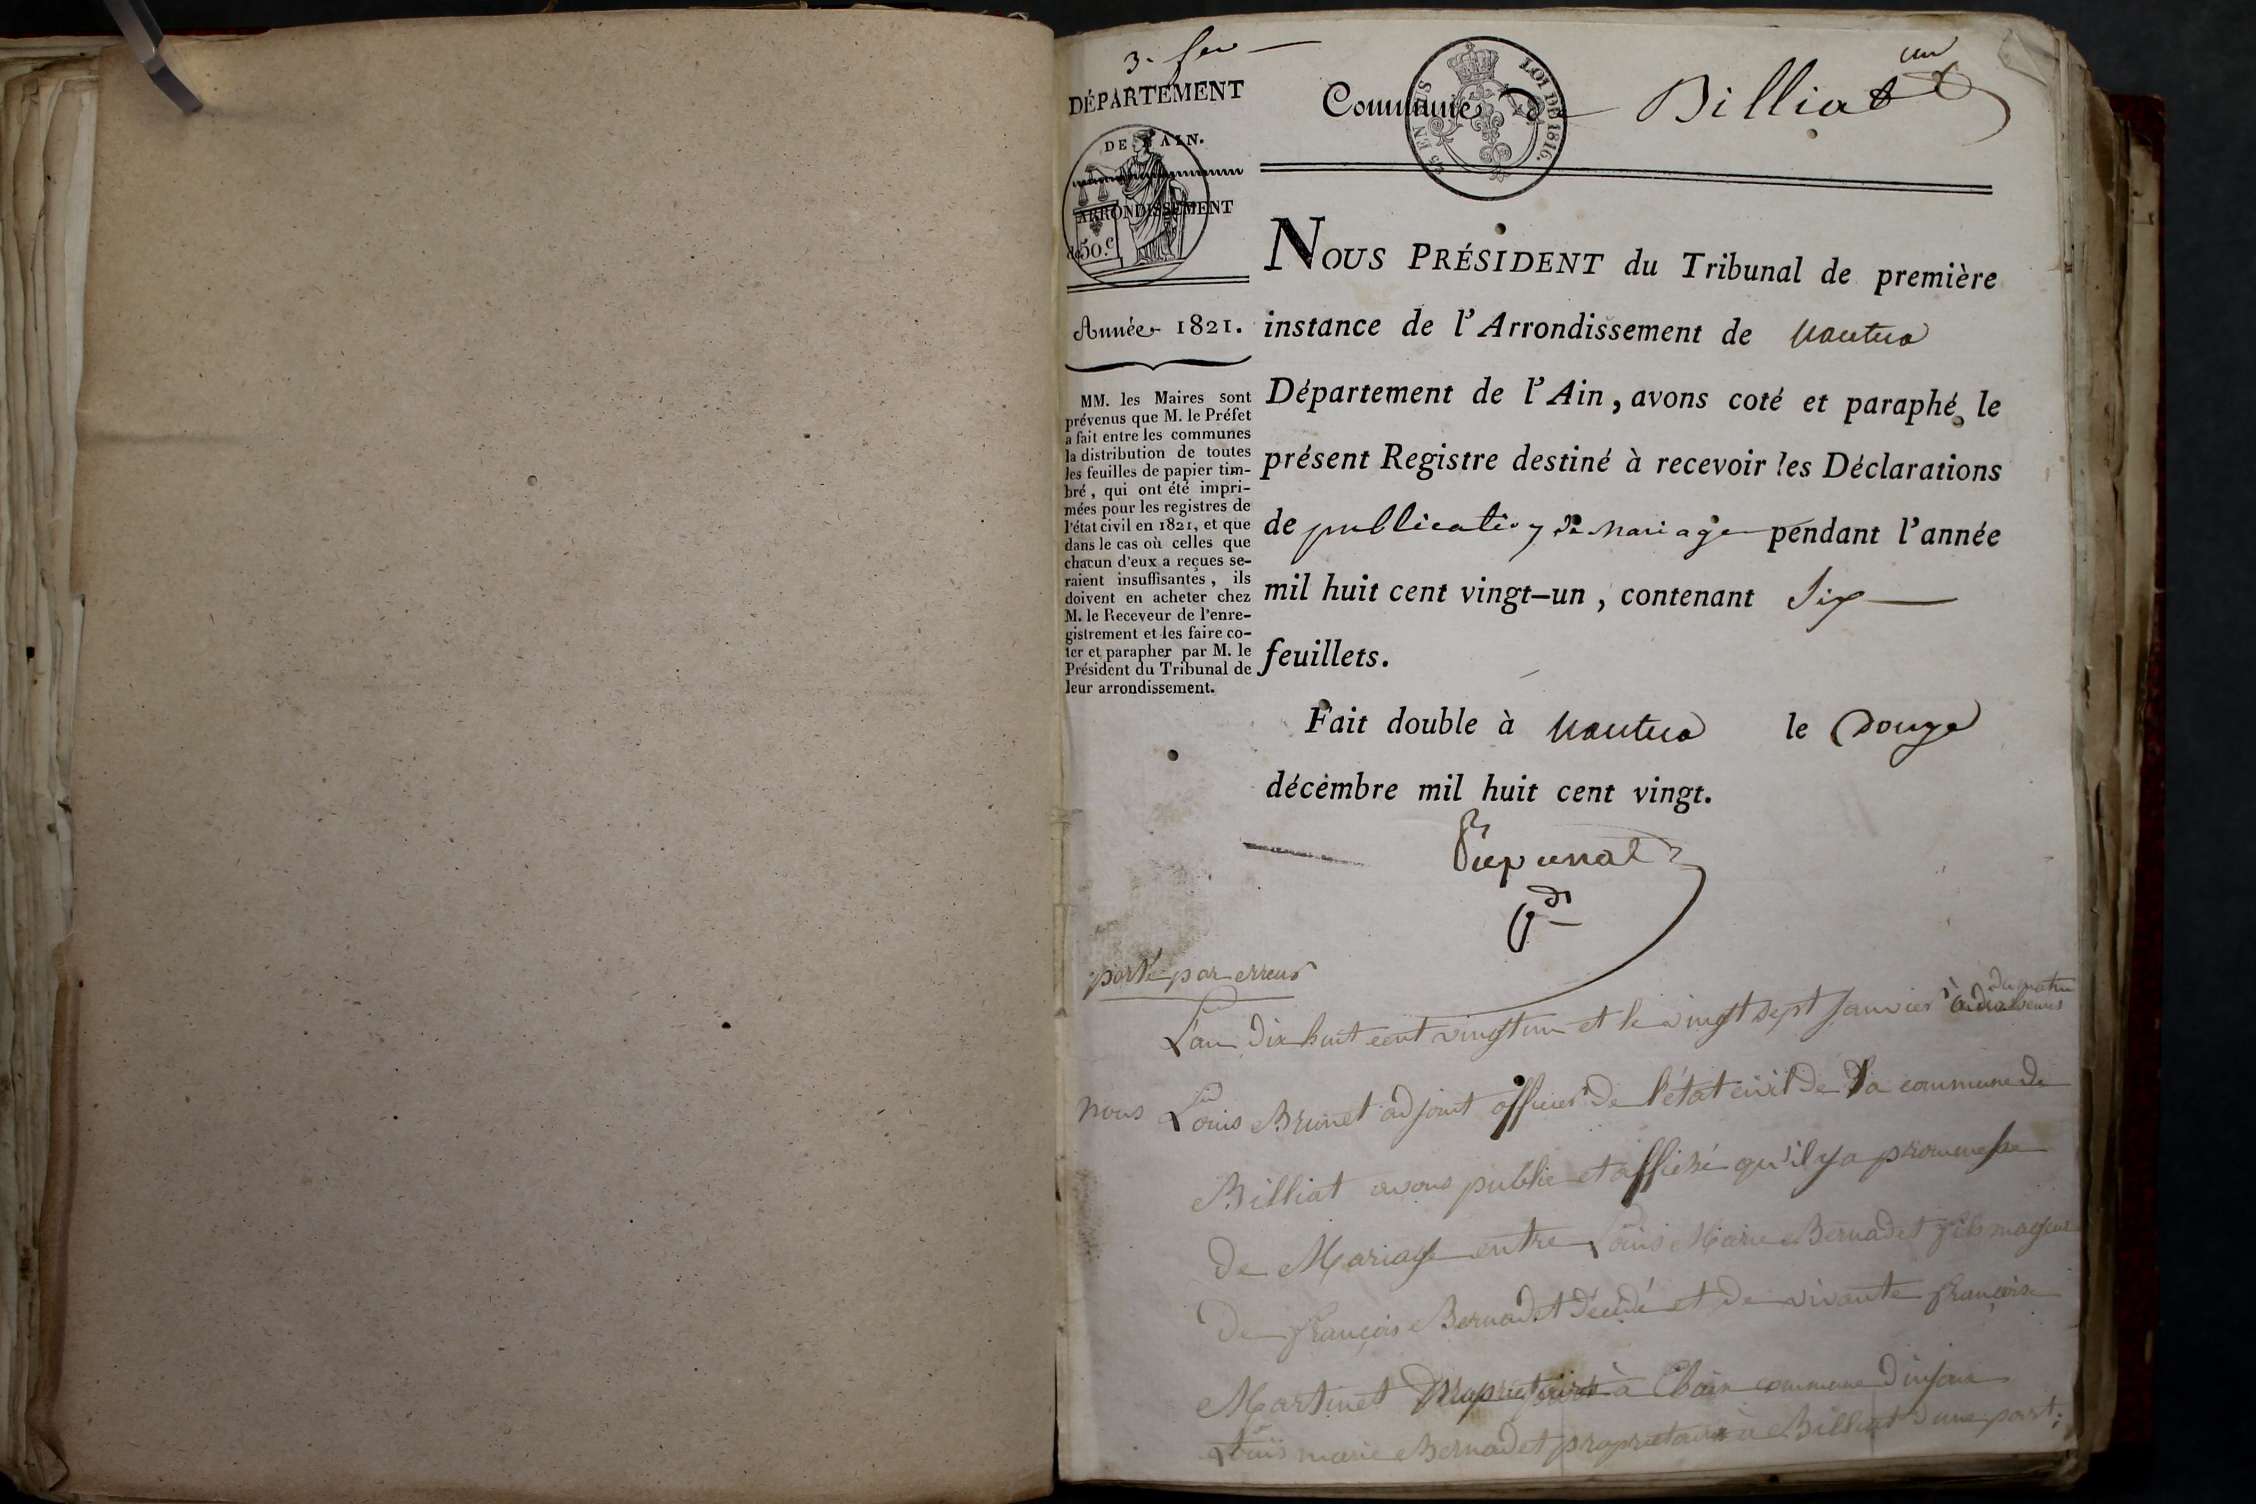 3.
DÉPARTEMENT
DE L'AIN.
ARRONDISSEMENT
de
50.c
Commune de Billiat
un
EN SUS
LOI DE 1816.
Année 1821.
MM. les Maires sont
prévenus que M. le Préfet
a fait entre les communes
la distribution de toutes
les feuilles de papier tim-
bré, qui ont été impri-
mées pour les registres de
l'état civil en 1821, et que
dans le cas où celles que
chacun d'eux a reçues se-
raient insuffisantes, ils
doivent en acheter chez
M. le Receveur de l'enre-
gistrement et les faire co-
ter et parapher par M. le
Président du Tribunal de
leur arrondissement.
NOUS PRÉSIDENT du Tribunal de première
instance de l'Arrondissement de Nantua
Département de l'Ain, avons coté et paraphé le
présent Registre destiné à recevoir les Déclarations
de publication de mariage pendant l'année
mil huit cent vingt-un, contenant Six
feuillets.
Fait double à Nantua le Douze
décembre mil huit cent vingt.
porté par erreur
L'an dix huit cent vingt un et le vingt sept Janvier à dix heures
du matin
nous Louis Brunet adjoint officier de l'état civil de la commune de
Billiat avons publié et affiché qu'il y a promesse
de Mariage entre Louis Marie Bernadet fils majeur
de françois Bernadet décédé et de vivante françoise
Martinet propriétaires à commune d'injoux
Louis marie Bernadet propriétaire à Billiat d'une part;